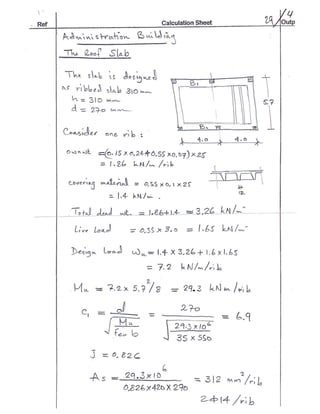 Ref
Calculation Sheet
Outp
Administration Building
The Roof Slab
The slab is designed
as ribbed slab 310 mm
h = 310 mm
d = 270 mm
B1
B1
5.7
4.0
4.0
Consider one rib :
own wt = (0.15 x 0.24 + 0.55 x 0.07) x 25
= 1.86 kN/m /rib
Covering material = 0.55 x 0.1 x 25
= 1.4 kN/m .
Total dead wt. = 1.86 + 1.4 = 3.26 kN/m
Live Load = 0.55 x 3.0 = 1.65 kN/m
Design Load ωu = 1.4 x 3.26 + 1.6 x 1.65
= 7.2 kN/m/rib
Mu = 7.2 x 5.7²/8 = 29.3 kNm /rib
C1 = d / √(Mu / fcu b) = 270 / √(29.3 x 10⁶ / 35 x 550) = 6.9
J = 0.826
As = 29.3 x 10⁶ / 0.826 x 420 x 270 = 312 mm²/rib
2 ϕ 14 /rib